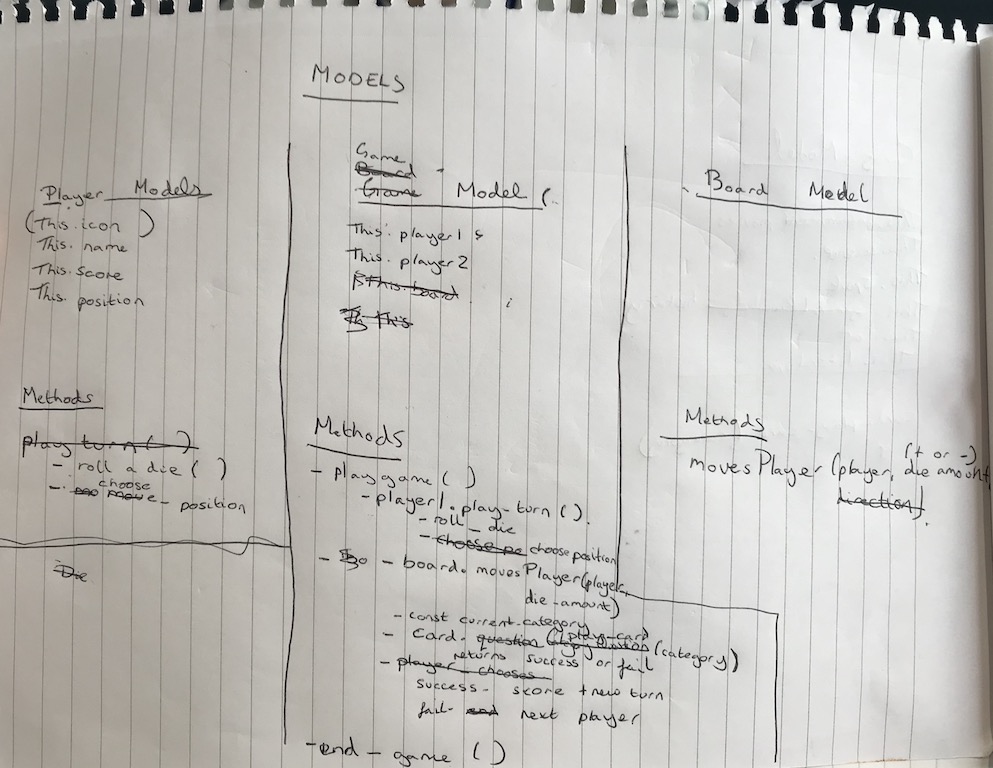 MODELS
Player Models
(This.icon )
This. name
This. score
This. position
Methods
play turn ( )
- roll a die ( )
choose
- move - position
Die
Game
Board
Game Model (
This. player 1 &
This. player 2
This. board
This
Methods
- play game ( )
- player 1. play-turn ( ).
- roll - die
- choose po choose position
- Bo - board. moves Player (player,
die-amount)
- const current-category
- Card- question play-card (category)
returns success or fail
- player chooses
success - score + new turn
fail - end next player
- end - game ( )
Board Model
Methods
(+ or -)
moves Player (player, die amount,
direction).